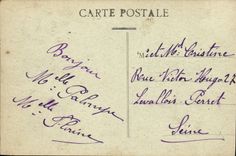 CARTE POSTALE
Bonjour
Melle Palmyre
Melle Florine
M: et Me Cristine
Rue Victor Hugo 27
Levallois Perret
Seine